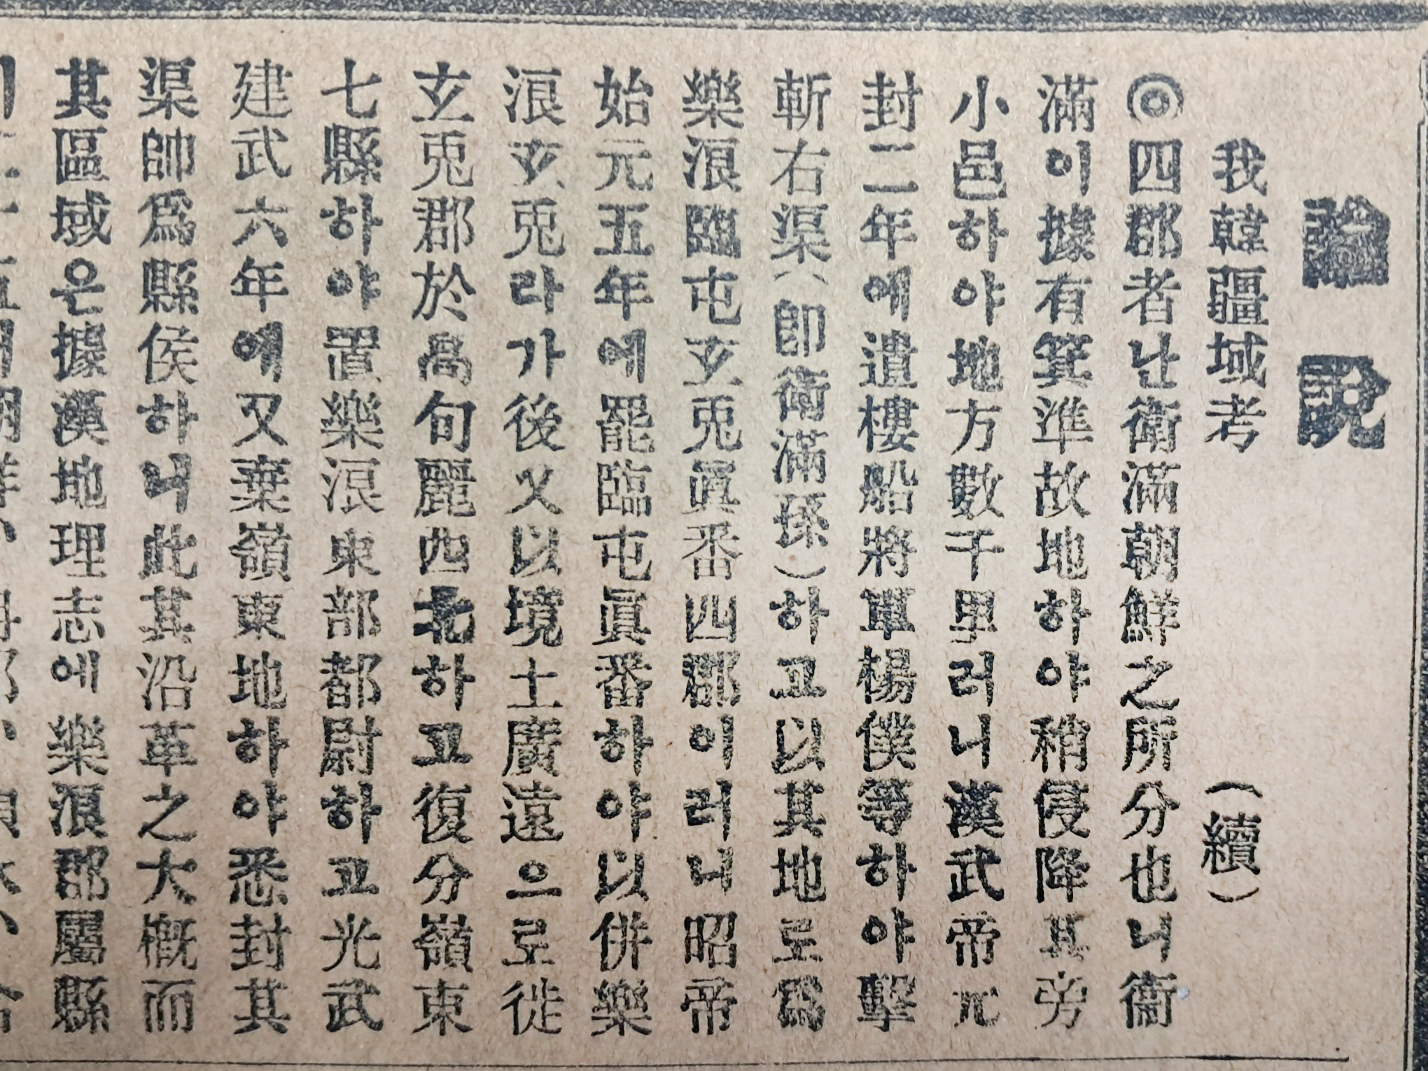 論說
我韓疆域考 (續)
◎四郡者난衛滿朝鮮之所分也니衞
滿이據有箕準故地하야稍侵降其旁
小邑하야地方數千里러니漢武帝元
封二年에遣樓船將軍楊僕等하야擊
斬右渠(卽衛滿孫)하고以其地로爲
樂浪臨屯玄兎眞番四郡이러니昭帝
始元五年에罷臨屯眞番하야以併樂
浪玄兎라가後又以境土廣遠으로徙
玄兎郡於高句麗西北하고復分嶺東
七縣하야置樂浪東部都尉하고光武
建武六年에又棄嶺東地하야悉封其
渠帥爲縣侯하니此其沿革之大槪而
其區域은據漢地理志에樂浪郡屬縣